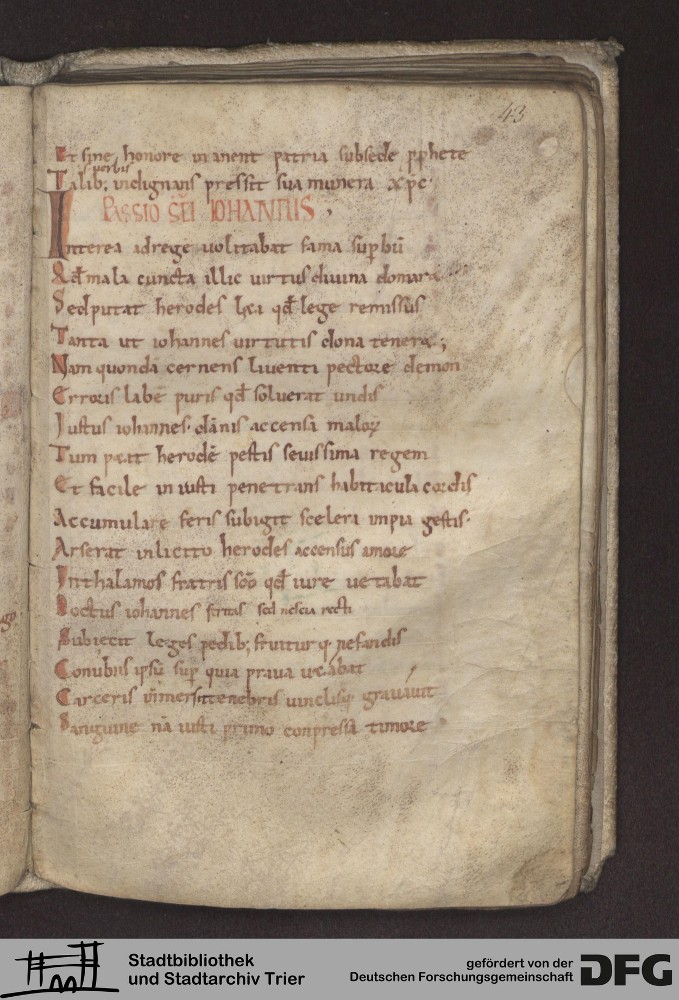 43
Et sine honore manent patria sub sede pphete
verbis
Talib; indignans pressit sua munera xp̄c·
PASSIO S̄C̄I IOHANNIS
Interea ad rege uolitabat fama sup̄bū
Qd̄ mala cuncta illic uirtus diuina domarat
Sed putat herodes hęc qd̄ lege remissus
Tanta ut iohannes uirtutis dona teneret;
Nam quondā cernens liuenti pectore demon
Erroris labē puris qd̄ solueret undis
Iustus iohannes· dānis accensa maloꝝ
Tum petit herodē pestis seuissima regem
Et facile iniusti penetrans habitacula cordis
Accumulare feris subigit scelera impia gestis·
Arserat inlicito herodes accensus amore
In thalamos fratris scd̄o qd̄ iure uetabat
Doctus iohannes feritas sed nescia recti
Subiecit leges pedib; fruiturq; nefandis
Conubiis ipsū sup̄ quia praua uetabat
Carceris īmersit tenebris uinclisq; grauauit
Sanguine nā iusti primo conpressa timore
Stadtbibliothek
und Stadtarchiv Trier
gefördert von der
Deutschen Forschungsgemeinschaft
DFG